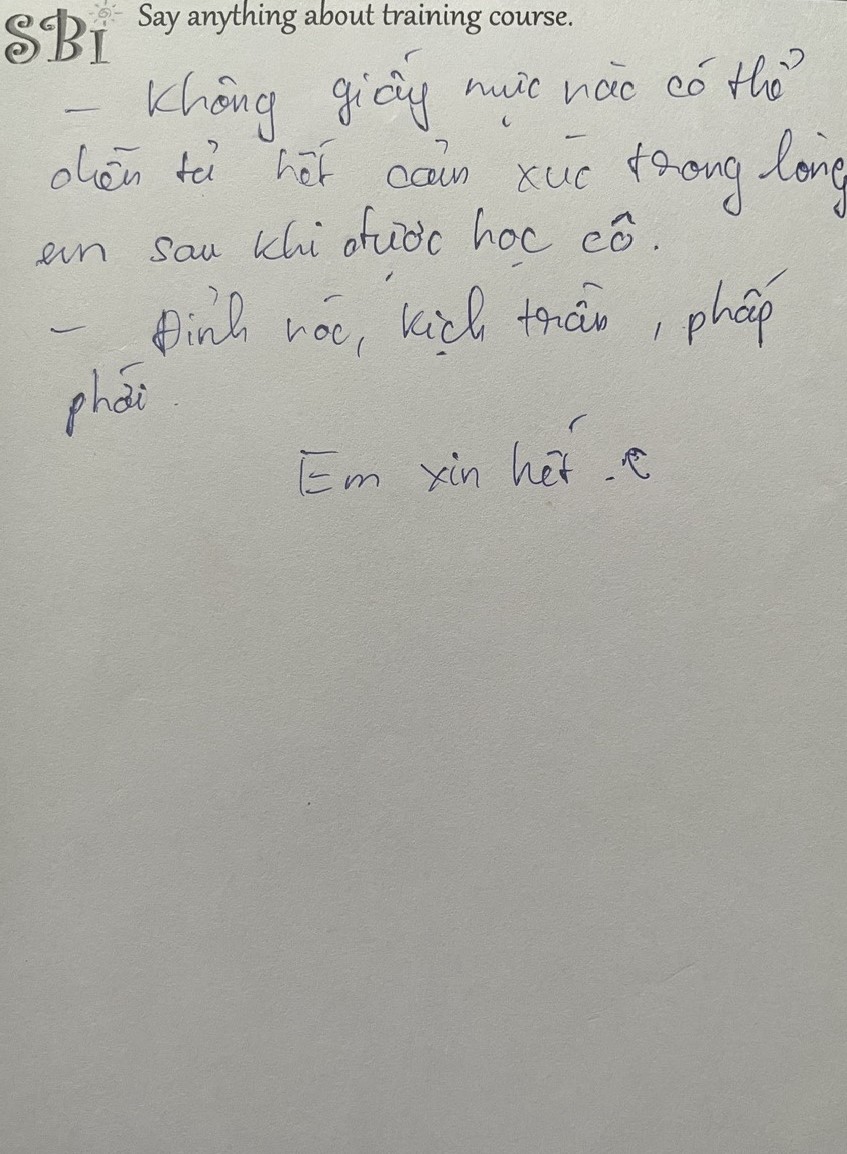 SBI Say anything about training course.
- Không giấy mực nào có thể
diễn tả hết cảm xúc trong lòng
em sau khi được học cô.
- Đỉnh nóc, kịch trần, phấp
phới.
Em xin hết.